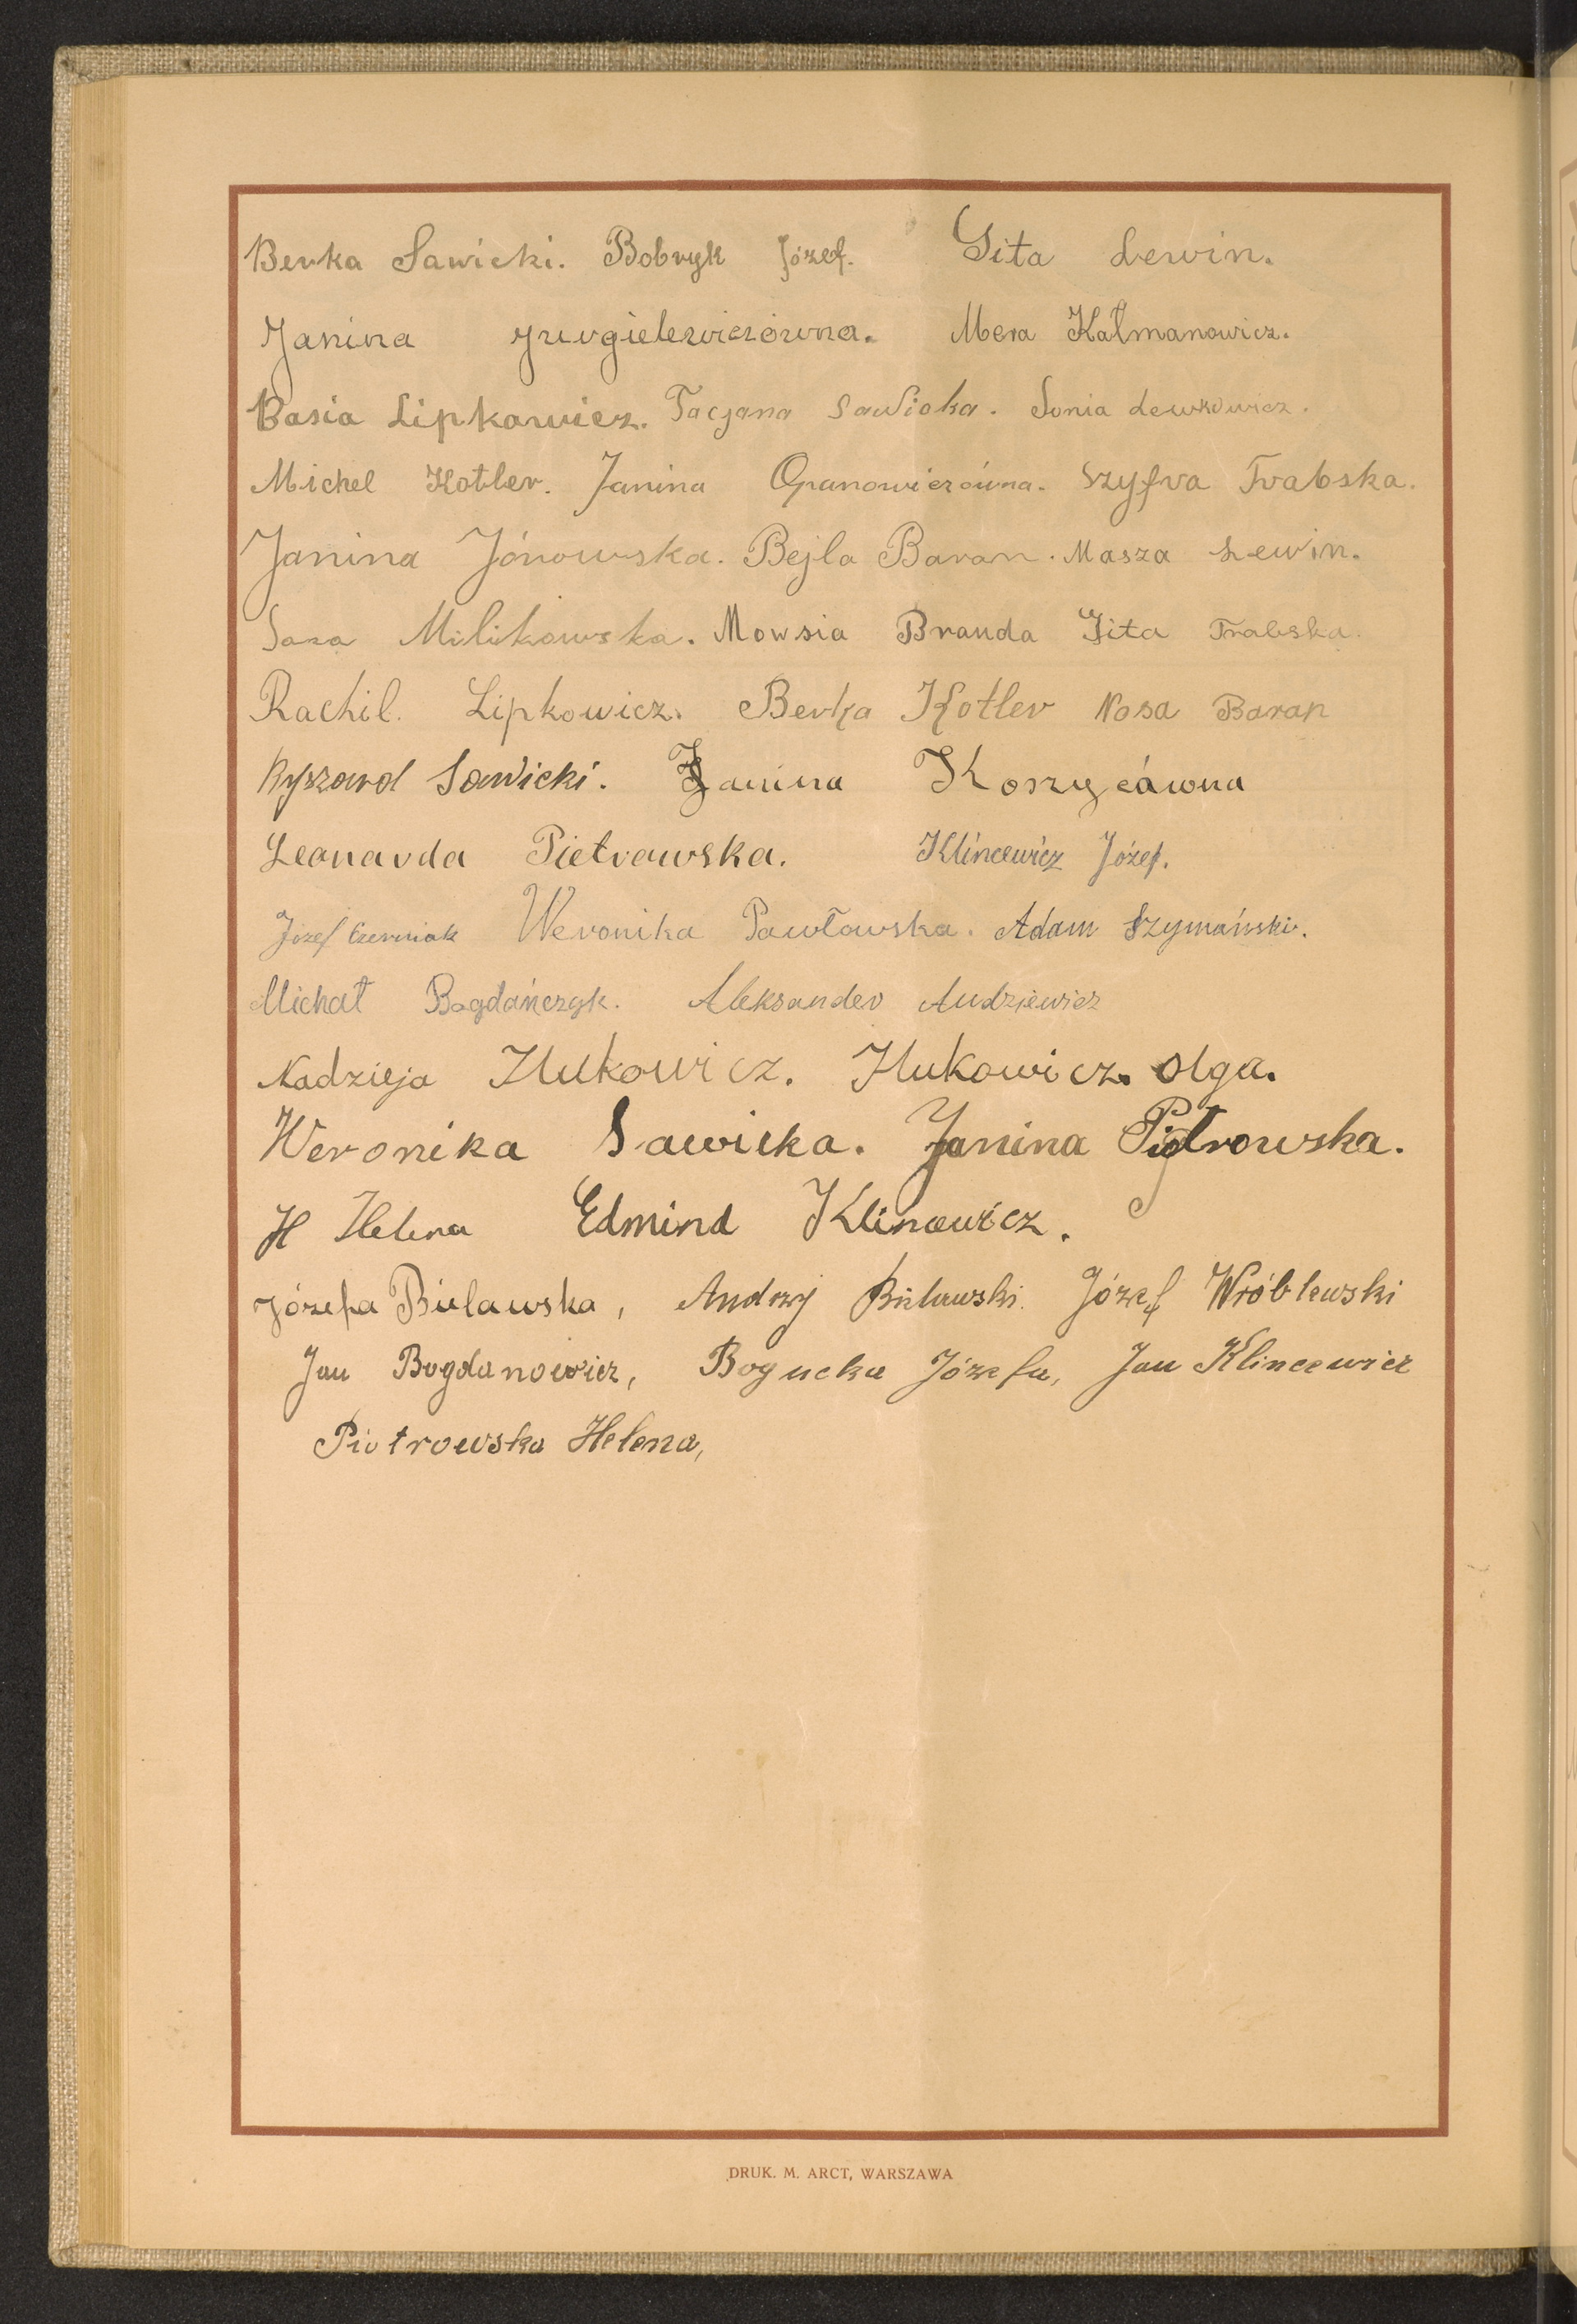 Berka Sawicki. Bobryk Józef. Gita Lewin.
Janina Mera Kalmanowicz.
Basia Lipkowicz. Tacjana Sawicka. Sonia Lewkowicz.
Michel Kotler. Janina Opanowiczówna. Szyfra Trabska.
Janina Jónowska. Bejla Baran. Masza Lewin.
Sara Milikowska. Mowsia Branda Gita Trabska.
Rachil. Lipkowicz. Berka Kotler Nosa Baran
Ryszard Sawicki. Janina Koszycówna
Leonarda Pietrowska. Klincewicz Józef.
Józef Czerniak Weronika Pawłowska. Adam Szymański.
Michał Bogdańczyk. Aleksander Andziewicz
Nadzieja Hukowicz. Hukowicz. Olga.
Weronika Sawicka. Janina Piotrowska.
H Helena Edmind Klincewicz.
Józefa Bielawska, Andrzej Bielawski. Józef Wróblewski
Jan Bogdanowicz, Bogucka Józefa, Jan Klincewicz
Piotrowska Helena,
DRUK. M. ARCT, WARSZAWA